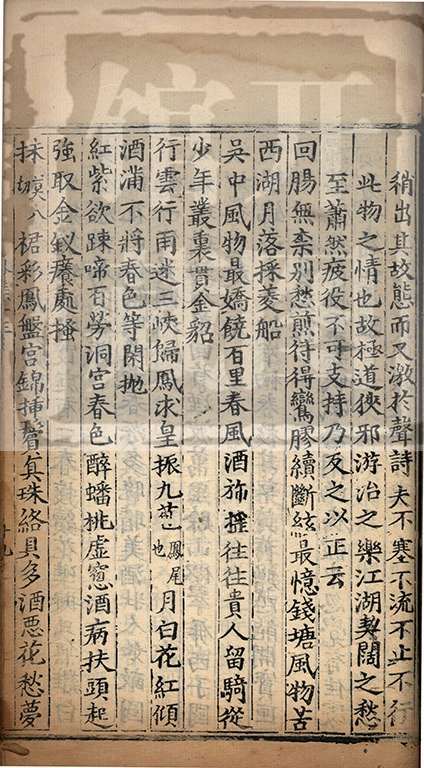 稍出其故態而又激於聲詩夫不塞不流不止不行
此物之情也故極道狹邪游冶之樂江湖契闊之愁
至蕭然疲役不可支持乃反之以正云
回腸無柰別愁煎待得鸞膠續斷絃最憶錢塘風物苦
西湖月落採菱船
吳中風物最嬌饒百里春風酒斾搖往往貴人留騎從
少年叢裏貫金貂
行雲行雨迷三峽歸鳳求皇振九苞鳳尾也月白花紅傾
酒滿不將春色等閑拋
紅紫欲踈啼百勞洞宫春色醉蟠桃虚窓酒病扶頭起
強取金釵癢處搔
抹嫫八裙彩鳳盤宫錦揷鬢真珠絡具多酒惡花愁夢